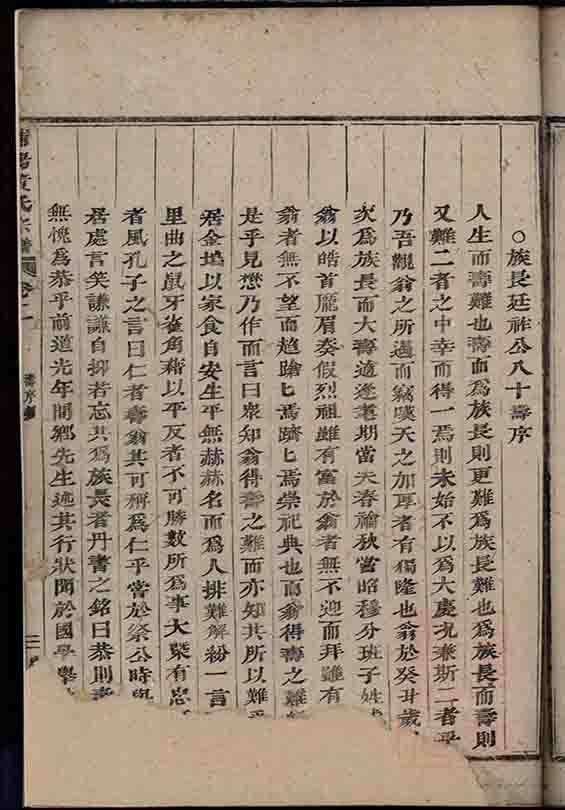 ○族長廷祚公八十壽序
人生而壽難也壽而為族長則更難為族長難也為族長而壽則
又難二者之中幸而得一焉則未始不以為大慶况兼斯二者乎
乃吾觀翁之所遇而竊嘆天之加厚者有獨隆也翁於癸丑歲
次為族長而大壽適逢耋期當夫春禴秋嘗昭穆分班子姓
翁以皓首龐眉奏假烈祖雖有富於翁者無不迎而拜雖有
翁者無不望而趨蹌蹌焉躋躋焉崇祀典也而翁得壽之難
是乎見懋乃作而言曰衆知翁得壽之難而亦知其所以難乎
居金塘以家食自安生平無赫赫名而為人排難解紛一言
里曲之鼠牙雀角藉以平反者不可勝數所為事大槩有忠
者風孔子之言曰仁者壽翁其可稱為仁乎嘗於祭公時與
居處言笑謙謙自抑若忘其為族長者丹書之銘曰恭則壽
無愧為恭乎前道光年間鄉先生述其行狀聞於國學舉
黃氏宗譜 卷一 壽序